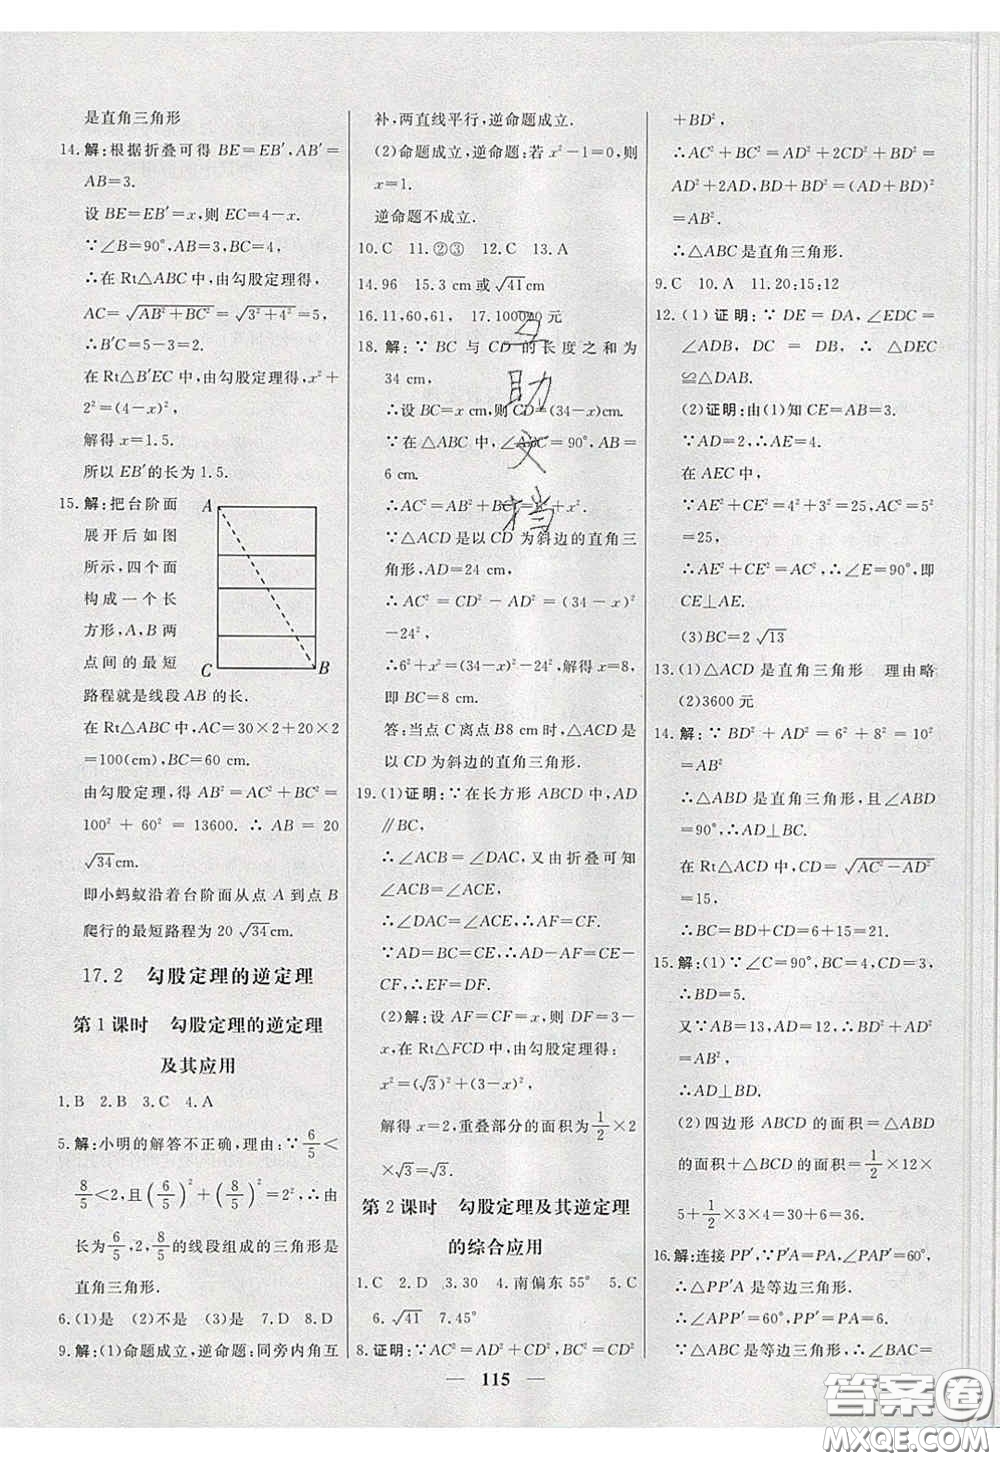 是直角三角形
14.解:根据折叠可得 BE=EB′,AB′=
AB=3.
设 BE=EB′=x,则 EC=4-x.
∵∠B=90°,AB=3,BC=4,
∴在 Rt△ABC 中,由勾股定理得,
AC=√(AB²+BC²)=√(3²+4²)=5,
∴B′C=5-3=2.
在 Rt△B′EC 中,由勾股定理得,x²+
2²=(4-x)²,
解得 x=1.5.
所以 EB′的长为 1.5.
15.解:把台阶面
展开后如图
所示,四个面
构成一个长
方形,A,B 两
点间的最短
路程就是线段 AB 的长.
A
C
B
在 Rt△ABC 中,AC=30×2+20×2
=100(cm),BC=60 cm.
由勾股定理,得 AB²=AC²+BC²=
100²+60²=13600. ∴ AB=20
√34cm.
即小蚂蚁沿着台阶面从点 A 到点 B
爬行的最短路程为 20 √34cm.
17.2 勾股定理的逆定理
第 1 课时 勾股定理的逆定理
及其应用
1.B 2.B 3.C 4.A
5.解:小明的解答不正确,理由:∵6/5<
8/5<2,且(6/5)²+(8/5)²=2²,∴三边
长为6/5,2,8/5的线段组成的三角形是
直角三角形.
6.(1)是 (2)不是 (3)是 7.D 8.D
9.解:(1)命题成立,逆命题:同旁内角互
补,两直线平行,逆命题成立.
(2)命题成立,逆命题:若 x²-1=0,则
x=1.
逆命题不成立.
10.C 11.②③ 12.C 13.A
14.96 15.3 cm或√41cm
16.11,60,61, 17.100020元
18.解:∵ BC 与 CD 的长度之和为
34 cm,
∴设 BC=x cm,则 CD=(34-x)cm.
∵在 △ABC 中,∠ABC=90°,AB=
6 cm.
∴AC²=AB²+BC²=6²+x².
∵△ACD 是以 CD 为斜边的直角三
角形,AD=24 cm,
∴ AC²=CD²-AD²=(34-x)²
-24²,
∴6²+x²=(34-x)²-24²,解得 x=8,
即 BC=8 cm.
答:当点 C 离点 B8 cm 时,△ACD 是
以 CD 为斜边的直角三角形.
19.(1)证明:∵在长方形 ABCD 中,AD
∥BC,
∴∠ACB=∠DAC,又由折叠可知
∠ACB=∠ACE,
∴∠DAC=∠ACE,∴AF=CF.
∵AD=BC=CE,∴AD-AF=CE-CF,
∴DF=EF.
(2)解:设 AF=CF=x,则 DF=3-
x,在 Rt△FCD 中,由勾股定理得:
x²=(√3)²+(3-x)²,
解得 x=2,重叠部分的面积为1/2×2
×√3=√3.
第 2 课时 勾股定理及其逆定理
的综合应用
1.C 2.D 3.30 4.南偏东 55° 5.C
6.√41 7.45°
8.证明:∵AC²=AD²+CD²,BC²=CD²
+BD²,
∴AC²+BC²=AD²+2CD²+BD²
=AD²+2AD·BD+BD²=(AD+BD)²
=AB².
∴△ABC 是直角三角形.
9.C 10.A 11.20;15;12
12.(1) 证明:∵ DE = DA,∠EDC =
∠ADB, DC = DB, ∴ △DEC
≌△DAB.
(2)证明:由(1)知 CE=AB=3.
∵AD=2,∴AE=4.
在 AEC 中,
∵AE²+CE²=4²+3²=25,AC²=5²
=25,
∴AE²+CE²=AC²,∴∠E=90°,即
CE⊥AE.
(3)BC=2 √13
13.(1)△ACD 是直角三角形 理由略
(2)3600 元
14.解:∵ BD²+AD²=6²+8²=10²
=AB²
∴△ABD 是直角三角形,且∠ABD
=90°,∴AD⊥BC.
在 Rt△ACD 中,CD=√(AC²-AD²)
=15,
∴BC=BD+CD=6+15=21.
15.解:(1)∵∠C=90°,BC=CD=3,
∴BD=3√2,
又∵AB=12,AD=15,∴AD²=BD²+
AB²,
∴AB⊥BD.
(2) 四边形 ABCD 的面积=△ABD
的面积+△BCD 的面积=1/2×12×
5+1/2×3×3=36.
16.解:连接 PP′,∵P′A=PA,∠PAP′=60°,
∴△PP′A 是等边三角形,
∴∠APP′=60°,PP′=PA=6,
∵△ABC 是等边三角形,
115
互助文档
答案卷
MXQE.COM